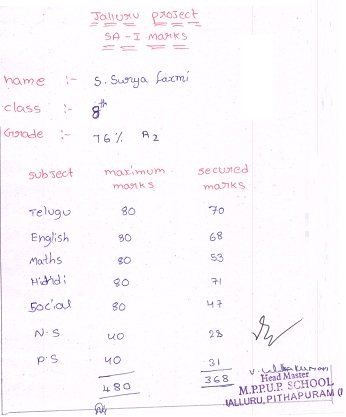 Jalluru project
SA-I marks
name :- S. Surya Laxmi
class :- 8th
Grade :- 76% A2
subject maximum marks secured marks
Telugu 80 70
English 80 68
Maths 80 53
Hindi 80 71
Social 80 47
N.S 40 28
P.S 40 31
480 368
Head Master
M.P.P.U.P. SCHOOL
JALLURU, PITHAPURAM